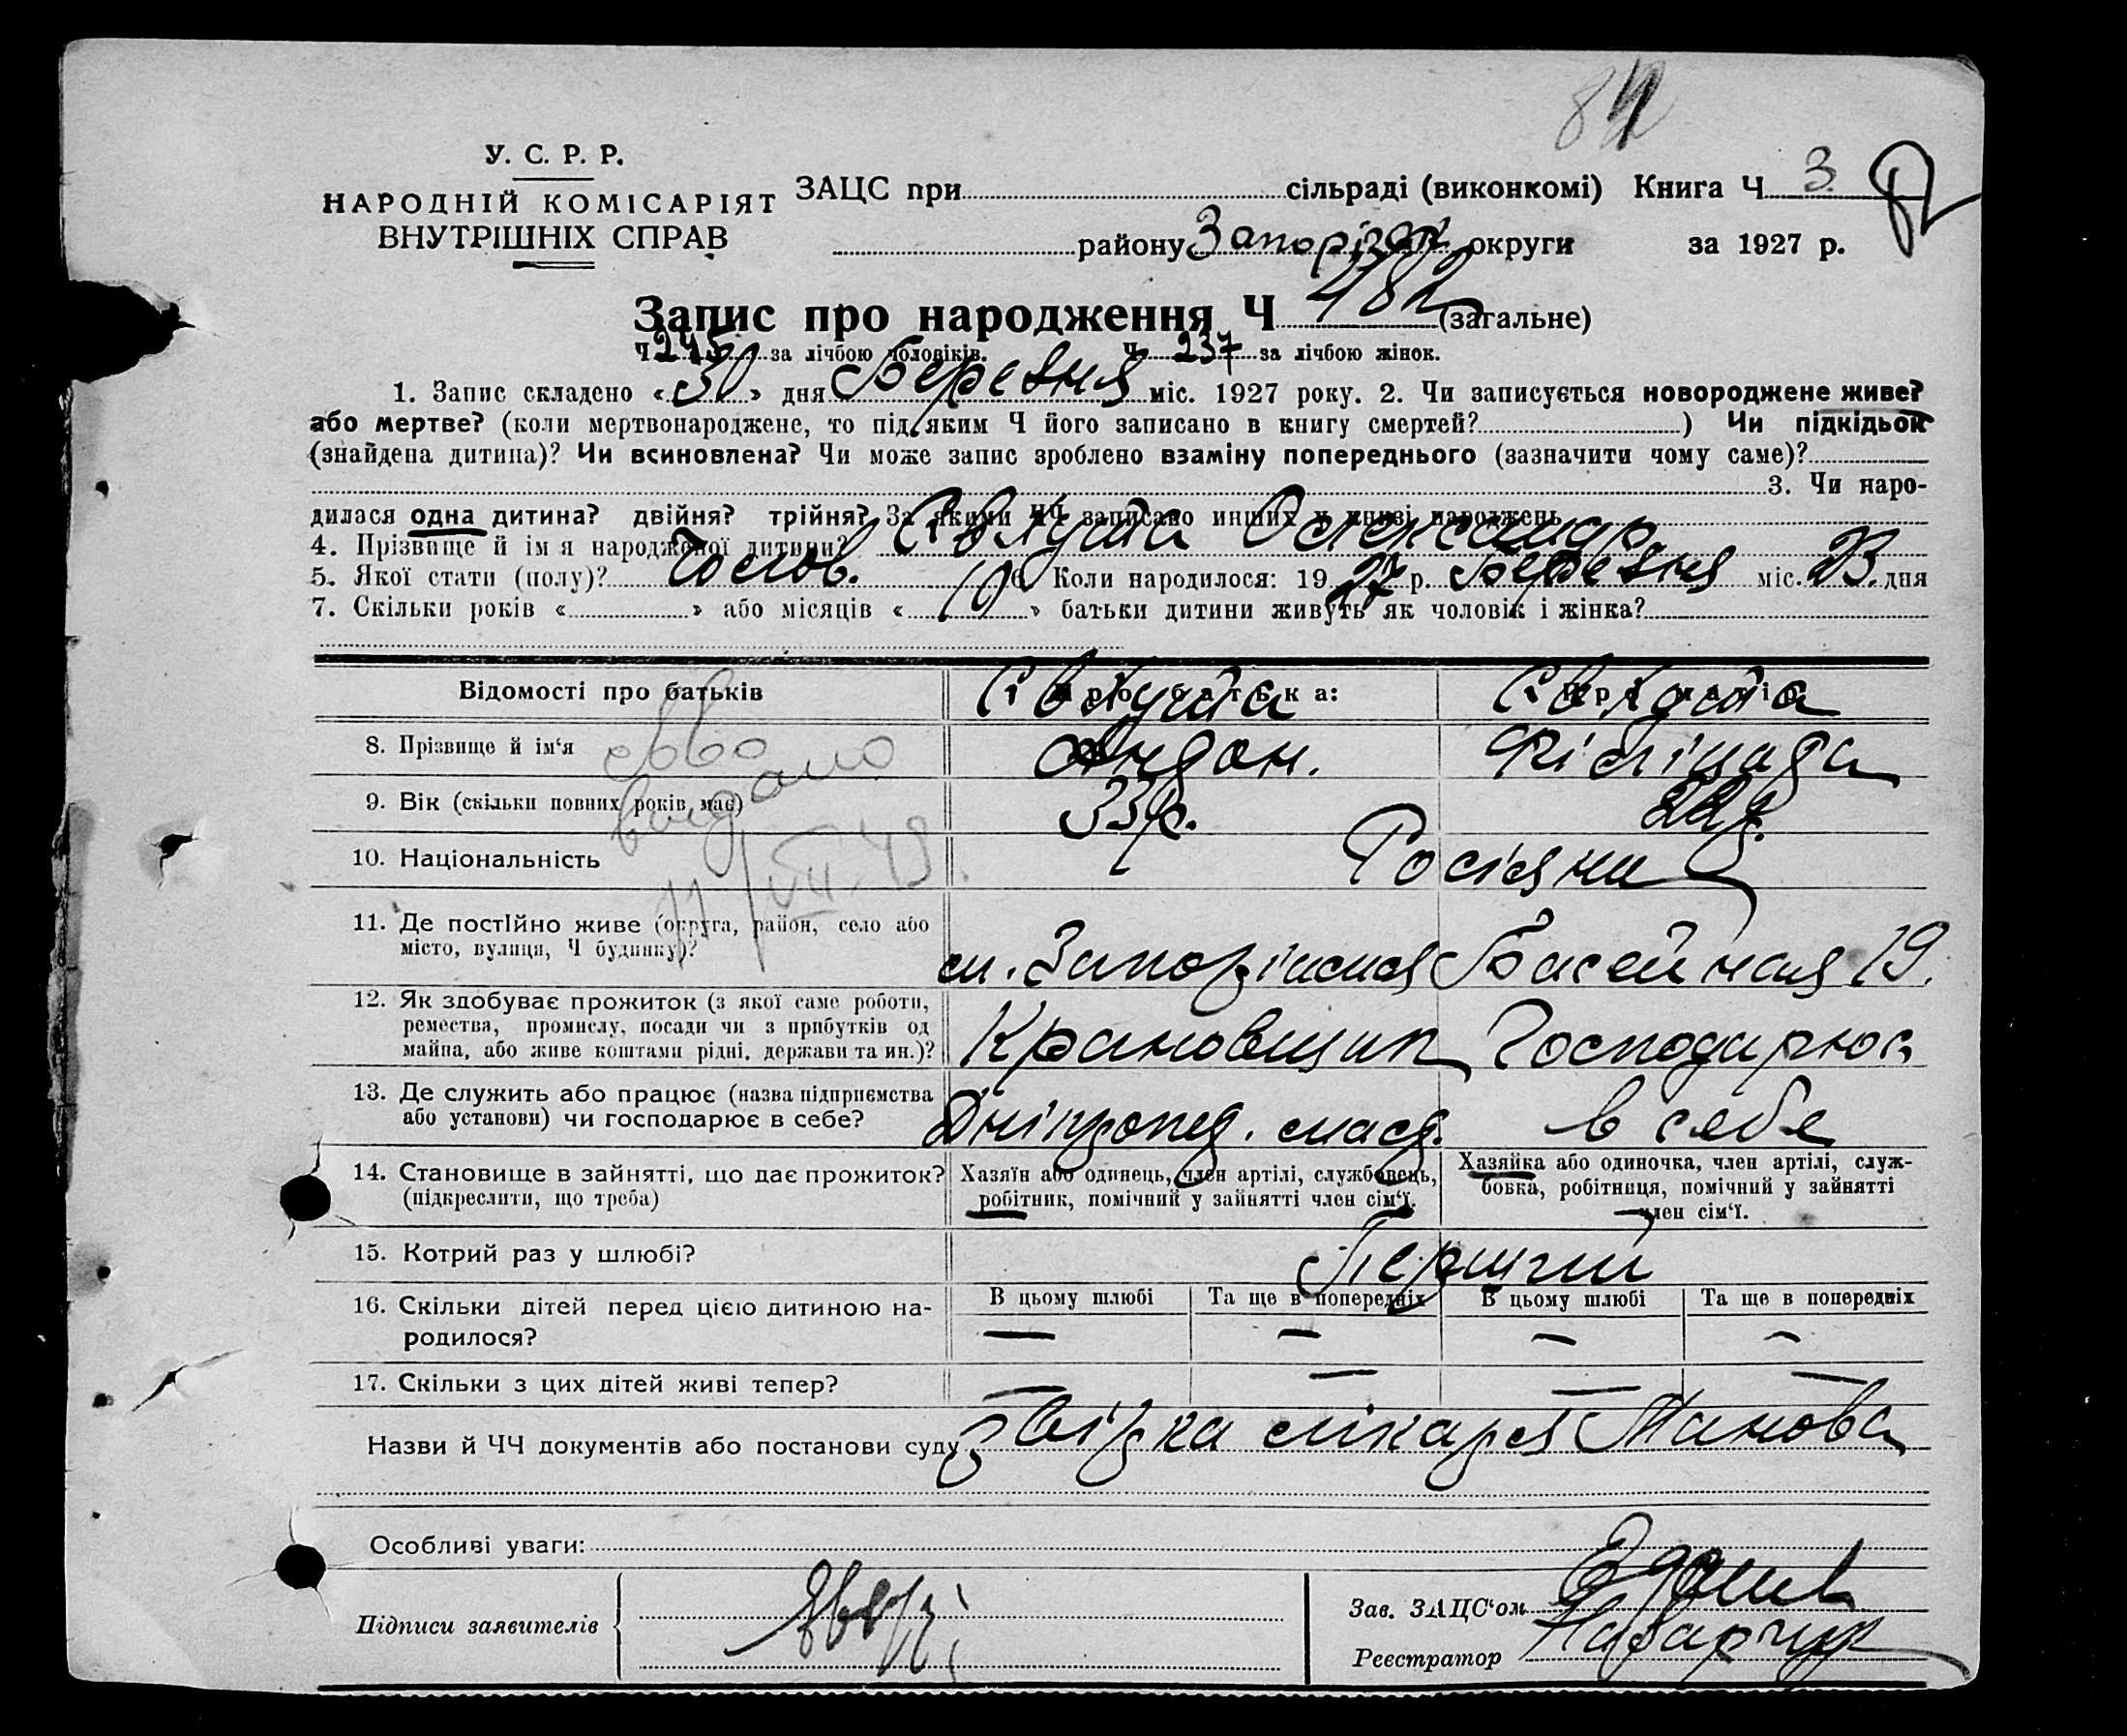 У. С. Р. Р.
НАРОДНІЙ КОМІСАРІЯТ
ВНУТРІШНІХ СПРАВ
ЗАЦС при сільраді (виконкомі) Книга Ч 3
району округи за 1927 р.
Запис про народження Ч 482 (загальне)
Ч 245 за лічбою чоловіків. Ч 237 за лічбою жінок.
1. Запис складено «30» дня Березня міс. 1927 року. 2. Чи записується новороджене живе?
або мертве? (коли мертвонароджене, то під яким Ч його записано в книгу смертей? ) Чи підкідьок
(знайдена дитина)? Чи всиновлена? Чи може запис зроблено взаміну попереднього (зазначити чому саме)?
3. Чи наро-
дилася одна дитина? двійня? трійня? За якими ЧЧ записано инших у книзі народжень
4. Прізвище й ім я народженої дитини? Олександр
5. Якої стати (полу)? Чолов. 6 Коли народилося: 1927 р. Березня міс. 23. дня
7. Скільки років « » або місяців « 10 » батьки дитини живуть як чоловік і жінка?
Відомості про батьків Про батька: Про матір:
8. Прізвище й ім‘я Андон.
видано
9. Вік (скільки повних років має) 33р. 22р.
10. Національність Росіяни
11/VII 49.
11. Де постІйно живе (округа, район, село або
місто, вулиця, Ч будинку)? Басейная 19.
12. Як здобуває прожиток (з якої саме роботи,
ремества, промислу, посади чи з прибутків од
майна, або живе коштами рідні, держави та ин.)? Крановщик Господарює
13. Де служить або працює (назва підприємства
або установи) чи господарює в себе? в себе
14. Становище в зайнятті, що дає прожиток?
(підкреслити, що треба)
Хазяїн або одинець, член артілі, службовець,
робітник, помічний у зайнятті член сім‘ї.
Хазяйка або одиночка, член артілі, служ-
бовка, робітниця, помічний у зайнятті
член сім‘ї.
15. Котрий раз у шлюбі? Перший
16. Скільки дітей перед цією дитиною на-
родилося?
В цьому шлюбі Та ще в попередніх В цьому шлюбі Та ще в попередніх
— — — —
17. Скільки з цих дітей живі тепер? — — — —
Назви й ЧЧ документів або постанови суду Звірка лікаря Манова
Особливі уваги:
Підписи заявителів
Зав. ЗАЦС‘ом
Реєстратор